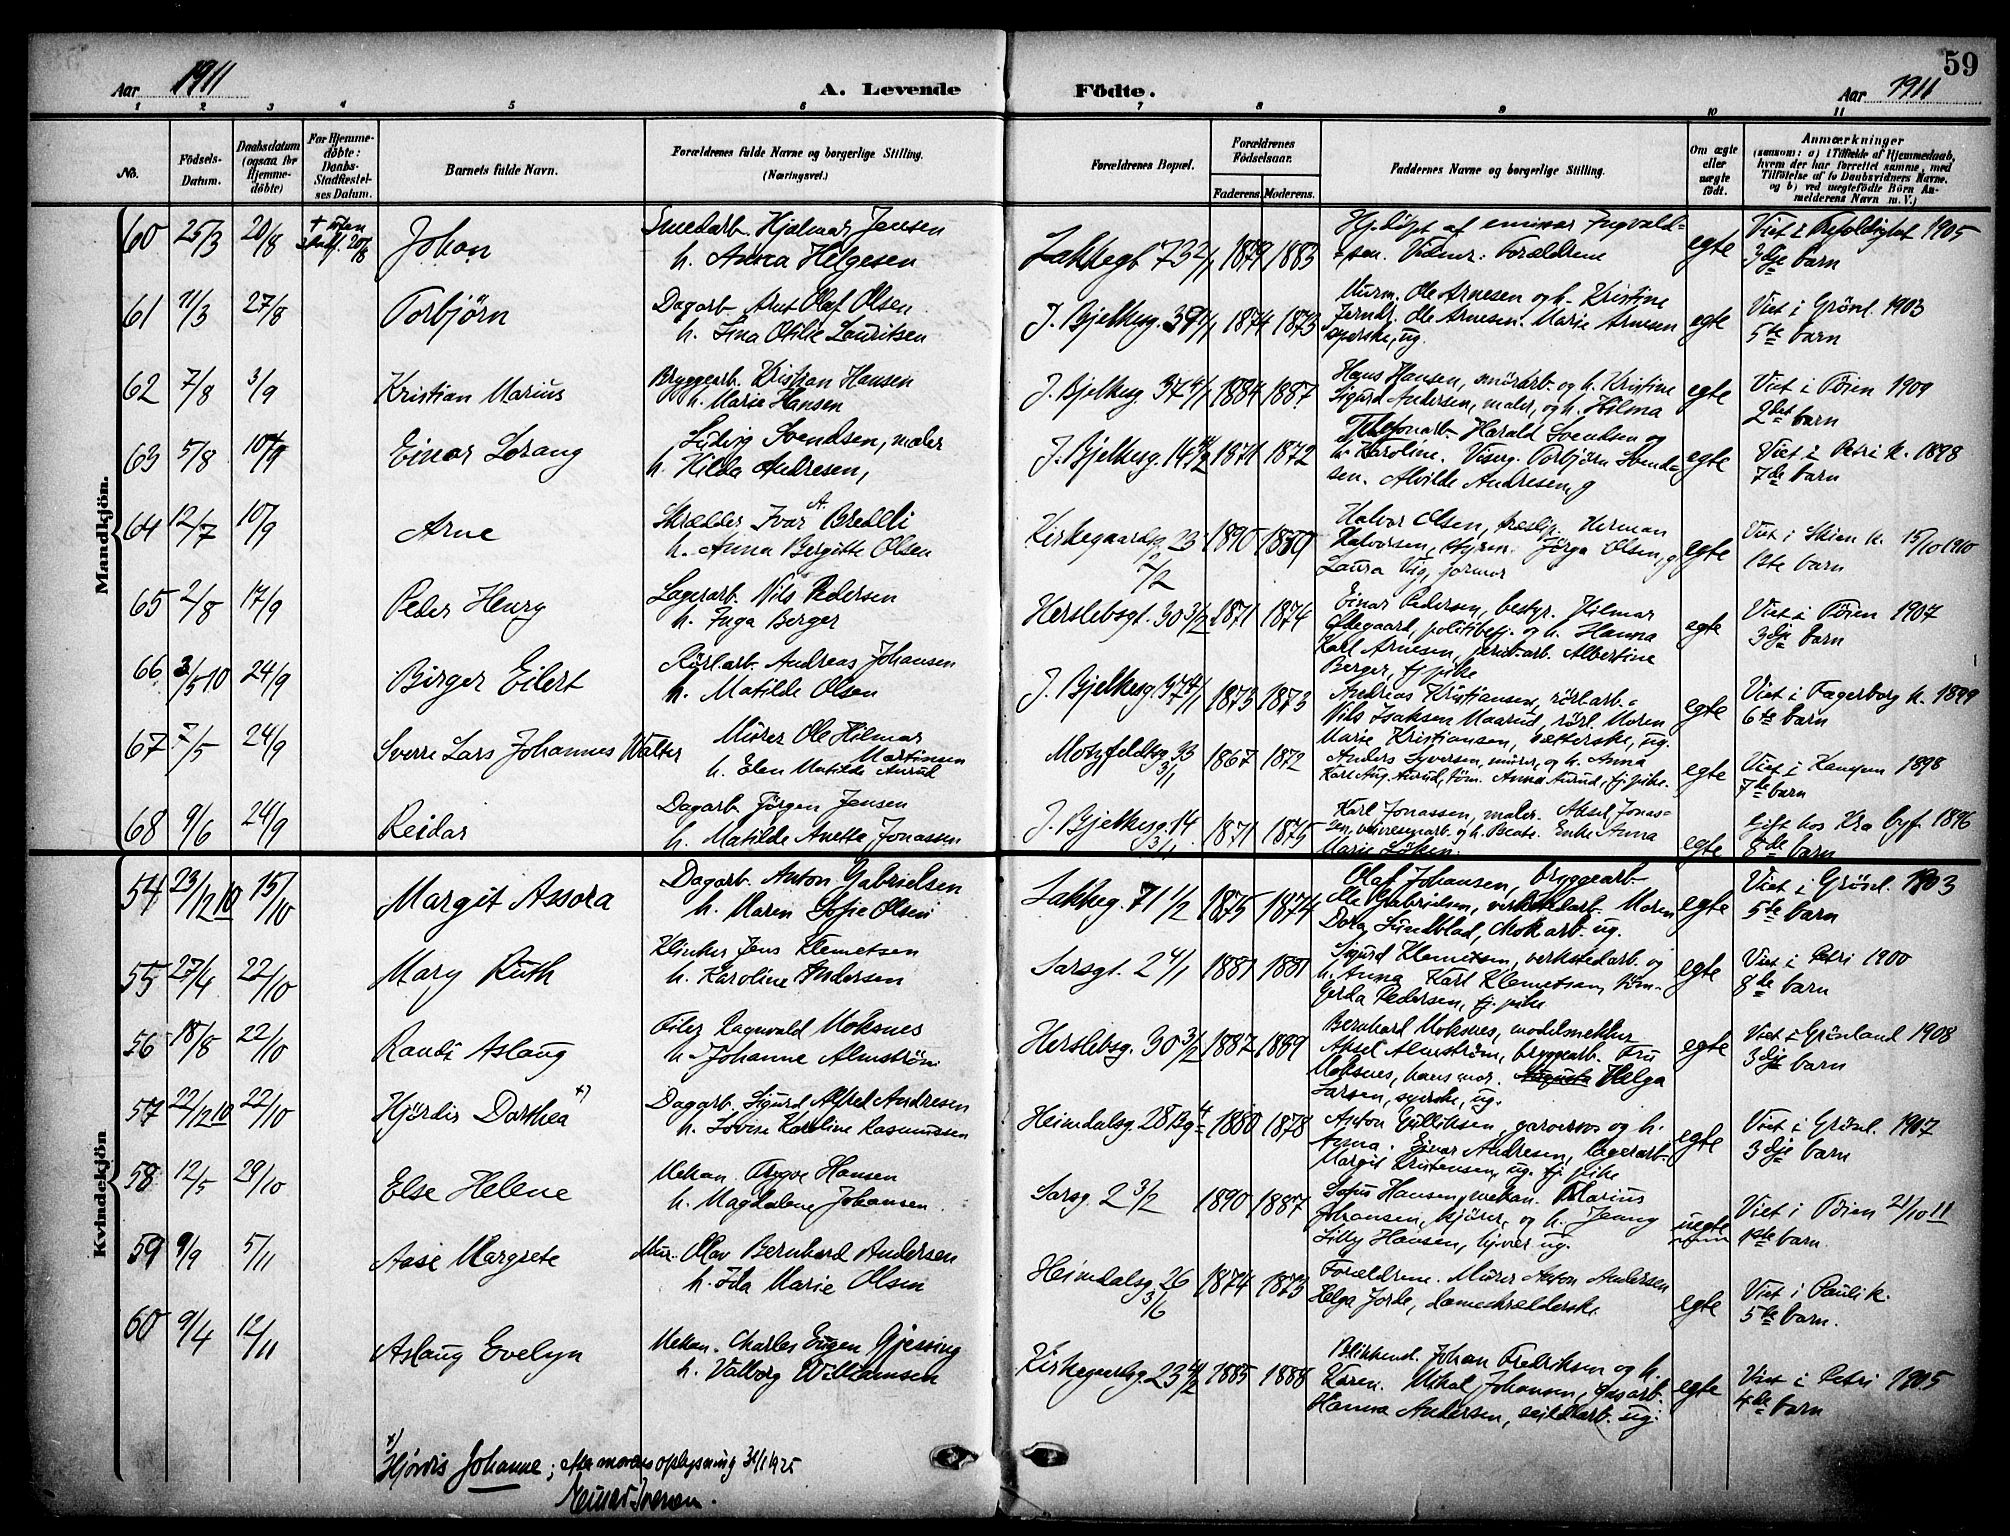 59
Aar 1911 A. Levende Födte. Aar 1911
1 2 3 4 5 6 7 8 9 10 11
No.
Födsels-
Datum.
Daabsdatum
(ogsaa for
Hjemme-
döbte)
For Hjemme-
döbte:
Daabs-
Stadfæstel-
ses Datum.
Barnets fulde Navn.
Forældrenes fulde Navne og borgerlige Stilling.
(Næringsvei.)
Forældrenes Bopæl.
Forældrenes
Födselsaar.
Faderens. Moderens.
Faddernes Navne og borgerlige Stilling.
Om ægte
eller
uægte
födt.
Anmærkninger
(saasom: a) i Tilfælde af Hjemmedaab,
hvem der har forrettet samme, med
Tilföielse af to Daabsvidners Navne.
og b) ved uægtefödte Börn An-
melderens Navn m. V.)
Mandkjön.
60 25/3 20/8 Johan
Smedarb. Hjalmar Jensen
h. Anna Helgesen
Lakkegt 73 2/1 1879 1883
Forældrene
egte
1905
3dje barn
61 11/3 27/8 Torbjörn
Dagarb. Olaf Olsen
h. Lina Otilie Lauritsen
J. Bjelkesg. 39 1/1 1874 1873
Murm. Ole Arnesen og h. Kristine
Ole Arnesen. Marie Arnesen
syerske, ug.
egte
Viet i Grönl. 1903
5te barn
62 7/8 3/9 Kristian Marius
Bryggearb. Kristian Hansen
h. Marie Hansen
J. Bjelkesg. 37 4/1 1884 1887
Hans Hansen, murarb. og h. Kristine
Sigurd Andersen, maler, og h. Hilma
egte
Viet i Töien 1909
2det barn
63 5/8 10/9 Einar Lorang
Ludvig Svendsen, maler
h. Hilda Andresen,
J. Bjelkesg. 14 1871 1872
Telefonarb. Harald Svendsen og
h. Karoline. Viserg. Torbjörn Svend-
sen. Alvilde Andresen, g
egte
Viet i Petri k. 1898
7de barn
64 12/7 10/9 Arne
Skrædder Ivar A. Bredli
h. Anna Bergitte Olsen
Kirkegaardsg 23
7/2 1890
Halvor Olsen, Herman
Halvorsen, fyrm. Jörga Olsen, g
Laura
egte
Viet i Skien k. 15/10 1910
1ste barn
65 2/8 17/9 Peder Henry
Lagerarb. Nils Pedersen
h. Inga Berger
Herslebsgt. 30 3/2 1871 1874
Einar Pedersen, bestyr. Hilmar
Ödegaard, politibetj. og h. Hanna
Karl Arnesen, Albertine
Berger, tj. pike
egte
Viet i Töien 1907
3dje barn
66 3/5 10 24/9 Birger Eilert
Rörl.arb. Andreas Johansen
h. Matilde Olsen
J. Bjelkesg 37 4/1 1873 1873
Andreas Kristiansen, rörl.arb.
Nils Isaksen Maarud, rörl. Maren
Marie Kristiansen, ug.
egte
Viet i Fagerborg k. 1899
6te barn
67 7/5 24/9 Sverre Lars Johannes Walter
Murer Ole Hilmar
Martinsen
h. Elen Matilde Aurud
Motzfeldtsg 33
3/1 1867 1872
Anders Syversen, murer, og h. Anna
Karl Aug. Aurud, töm. Anna Aurud, tj. pike
egte
Viet i Kampen 1898
7de barn
68 9/6 24/9 Reidar
Dagarb. Jörgen Jensen
h. Matilde Anette Jonassen
J. Bjelkesg. 14
3/1 1871 1875
Karl Jonassen, maler. Aksel Jonas-
sen, og h. Beate. Enke Anna
Marie Löken.
egte
Gift hos Kra byf. 1896
8de barn
Kvindekjön
54 23/12 10 15/10 Margit Assora
Dagarb. Anton Gabrielsen
h. Maren Sofie Olsen
Lakkeg. 71 1/2 1875 1874
Olaf Johansen, bryggearb.
Ole Gabrielsen, verkstedarb. Maren
Dora Sundblad, chok.arb. ug.
egte
Viet i Grönl. 1903
5te barn
55 27/4 22/10 Mary Ruth
Klinker Jens Klemetsen
h. Karoline Andersen
Sarsgt. 2 4/1 1881 1881
Sigurd Klemetsen, verkstedarb. og
h. Anna Karl Klemetsen, töm.
Gerda Pedersen, tj. pike
egte
Viet i Petri 1900
8de barn
56 18/8 22/10 Randi Aslaug
Filer Ragnvald Moksnes
h. Johanne Almström
Herslebsg. 30 3/2 1887 1889
Bernhard Moksnes, modelsnekker
Aksel Almström, bryggearb. Fru
Moksnes, hans mor. Augusta Helga
Larsen, syerske, ug.
egte
Viet i Grönland 1908
3dje barn
57 22/12 10 22/10 Hjördis Dorthea x)
Dagarb. Sigurd Alfred Andresen
h. Lovise Karoline Rasmussen
Heimdalsg. 28 1880 1878
Anton Gulliksen, garversv og h.
Anna. Einar Andresen, lagerarb.
Margit Kristensen, ug. tj. pike
egte
Viet i Grönl. 1907
3dje barn
58 12/5 29/10 Else Helene
Mekan. Trygve Hansen
h. Magdalene Johansen
Sarsg. 2 3/2 1890 1887
Sofus Hansen, mekan. Marius
Johansen, kjörer, og h. Jenny
Lilly Hansen, ug.
uegte
Viet i Töien 21/10 11
1ste barn.
59 9/9 5/11 Aase Margrete
Mur. Olav Bernhard Andersen
h. Ida Marie Olsen
Heimdalsg 26
3/6 1874 1873
Forældrene. Murer Anton Andersen
Helga Jorde, dameskrædderske
egte
Viet i Paulik.
5te barn.
60 9/4 12/11 Aslaug Evelyn
Mekan. Charles Eugen Gjessing
h. Valborg Williamsen
Kirkegaardsg. 23 4/2 1885 1888
Blikkensl. Johan Fredriksen og h.
Karen. Mikal Johansen, gasarb.
Hanna Andersen, ug.
egte
Viet i Petri 1905
4de barn
x)
Hjördis Johanne; efter morens oplysning 31/1 1925